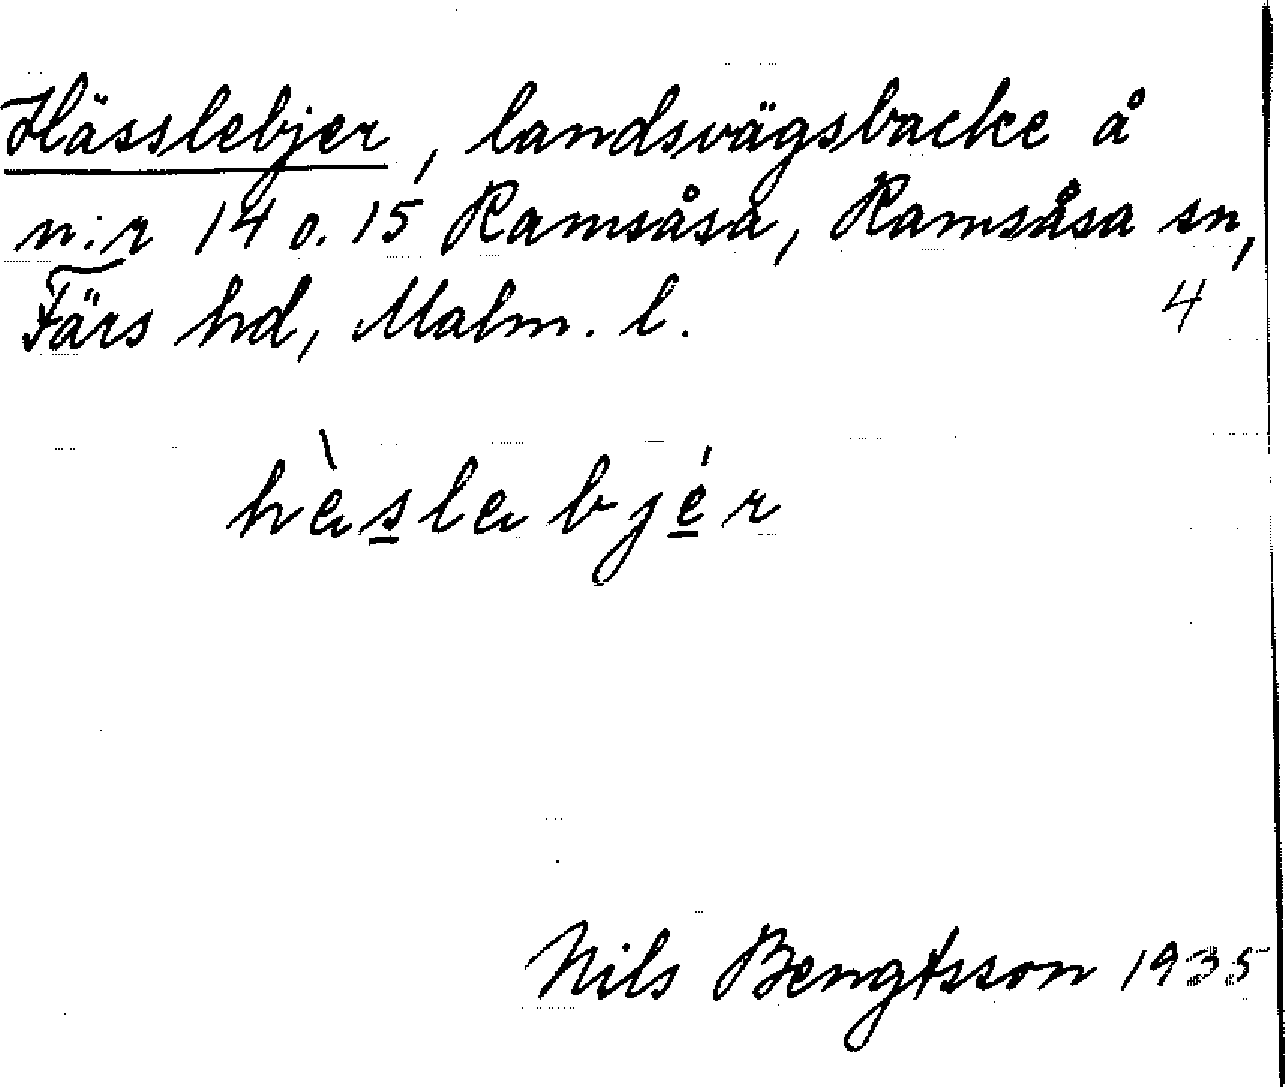 Hässlebjer, landsvägsbacke å
n:r 14 o. 15 Ramsåsa, Ramsåsa sn,
Färs hd, Malm. l. 4
hàslabjér
Nils Bengtsson 1935